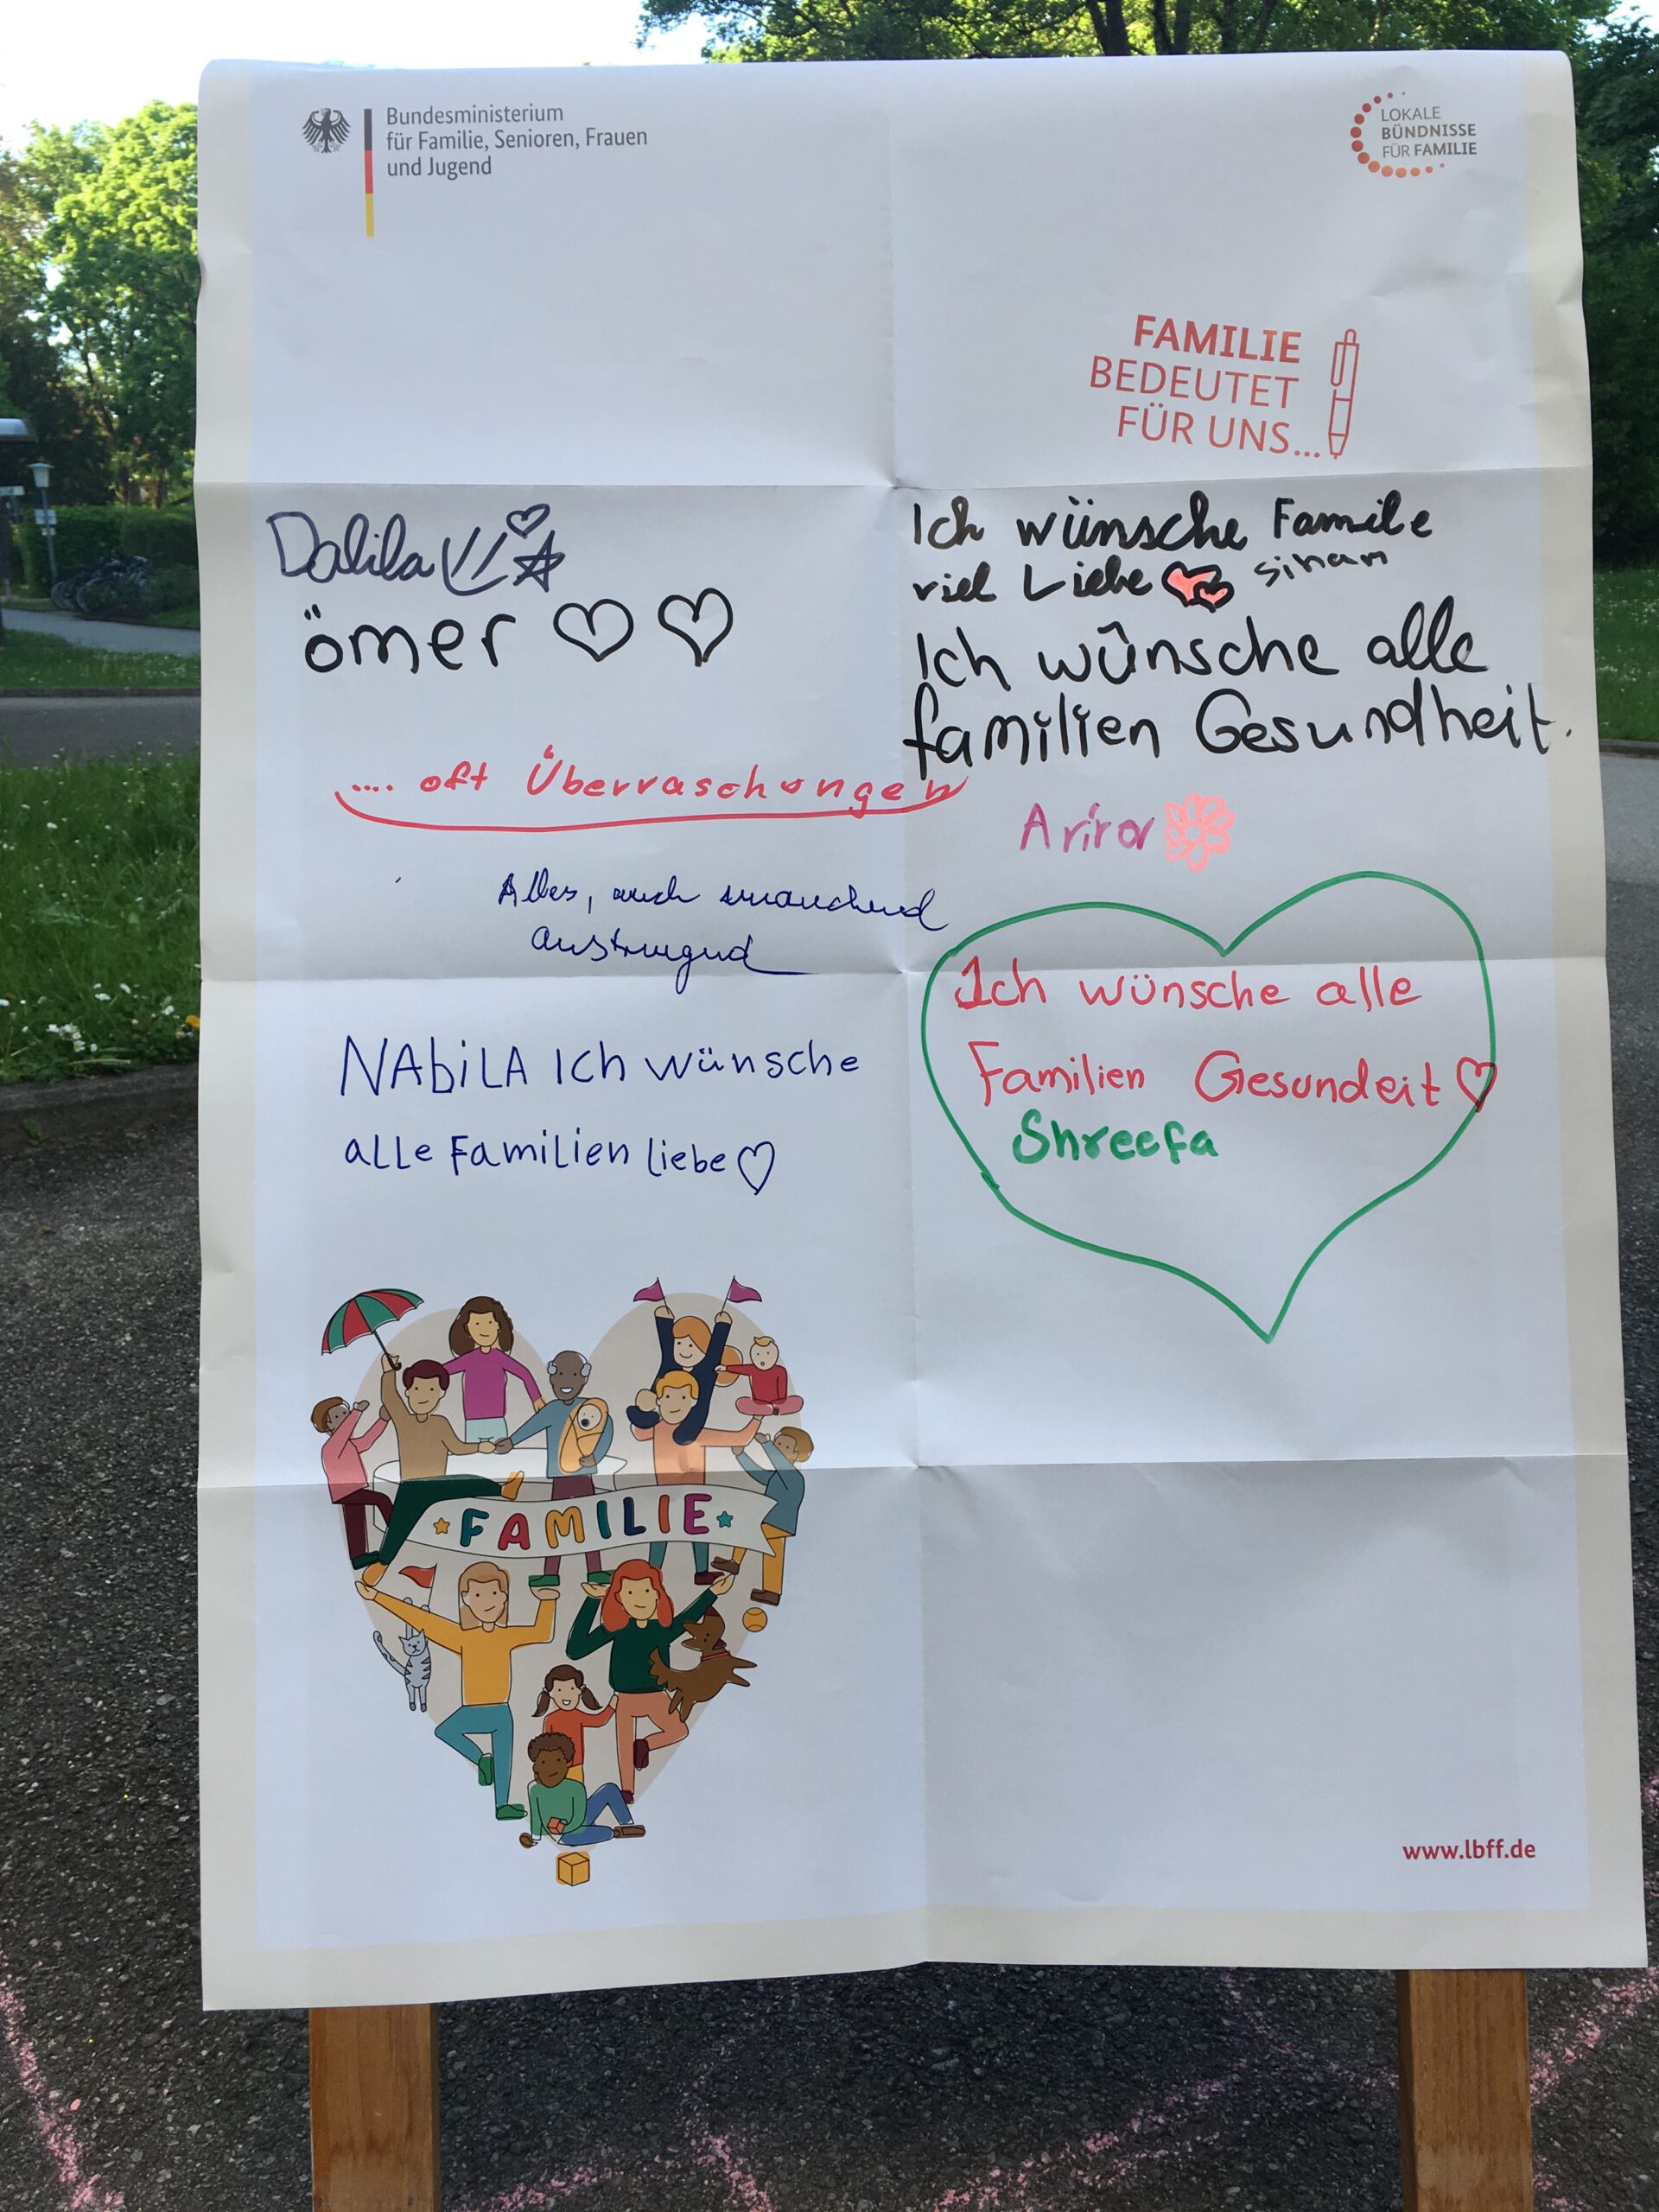 Bundesministerium
für Familie, Senioren, Frauen
und Jugend
LOKALE
BÜNDNISSE
FÜR FAMILIE
FAMILIE
BEDEUTET
FÜR UNS...
Dalila
ömer
.... oft Überraschungen
Alles, auch manchmal
anstrengend
NAbiLA Ich wünsche
alle Familien liebe
Ich wünsche Famile
viel Liebe sinan
Ich wûnsche alle
familien Gesundheit.
Ich wünsche alle
Familien Gesundeit
Shreefa
FAMILIE
www.lbff.de